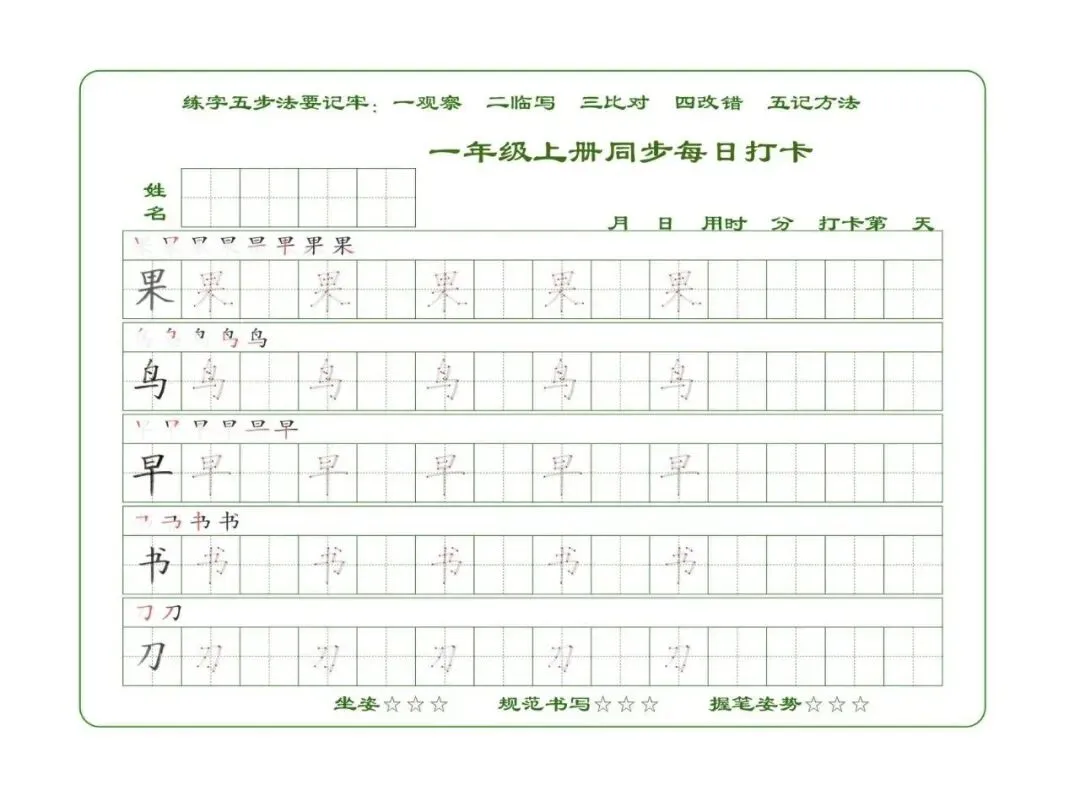 练字五步法要记牢：一观察 二临写 三比对 四改错 五记方法
一年级上册同步每日打卡
姓名
月 日 用时 分 打卡第 天
果 果
果 果 果 果 果 果
鸟 鸟
鸟 鸟 鸟 鸟 鸟 鸟
早
早 早 早 早 早 早
书 书
书 书 书 书 书 书
刀
刀 刀 刀 刀 刀 刀
坐姿☆☆☆ 规范书写☆☆☆ 握笔姿势☆☆☆